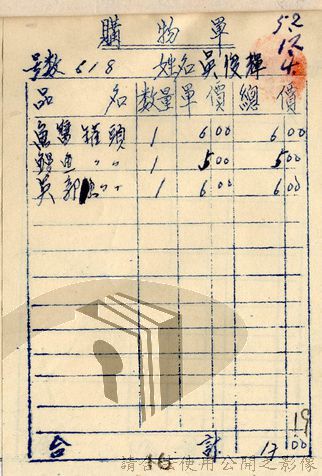 購物單
52
12
4
号數 618 姓名 吳俊輝
品名 數量 單價 總價
魚鬆罐頭 1 6.00 6.00
鰻魚 〃〃 1 5.00 5.00
吳郭魚〃〃 1 6.00 6.00
19
合計 17.00
16
請合法使用公開之影像